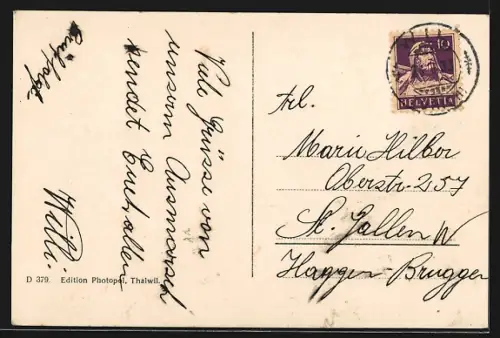 Viele Grüsse von
unserm Ausmarsch
sendet Euch allen
Willi.
D 379. Edition Photopol, Thalwil.
10
HELVETIA
Frl.
Marie Hilber
Oberstr. 257
St. Gallen W
Haggen-Bruggen